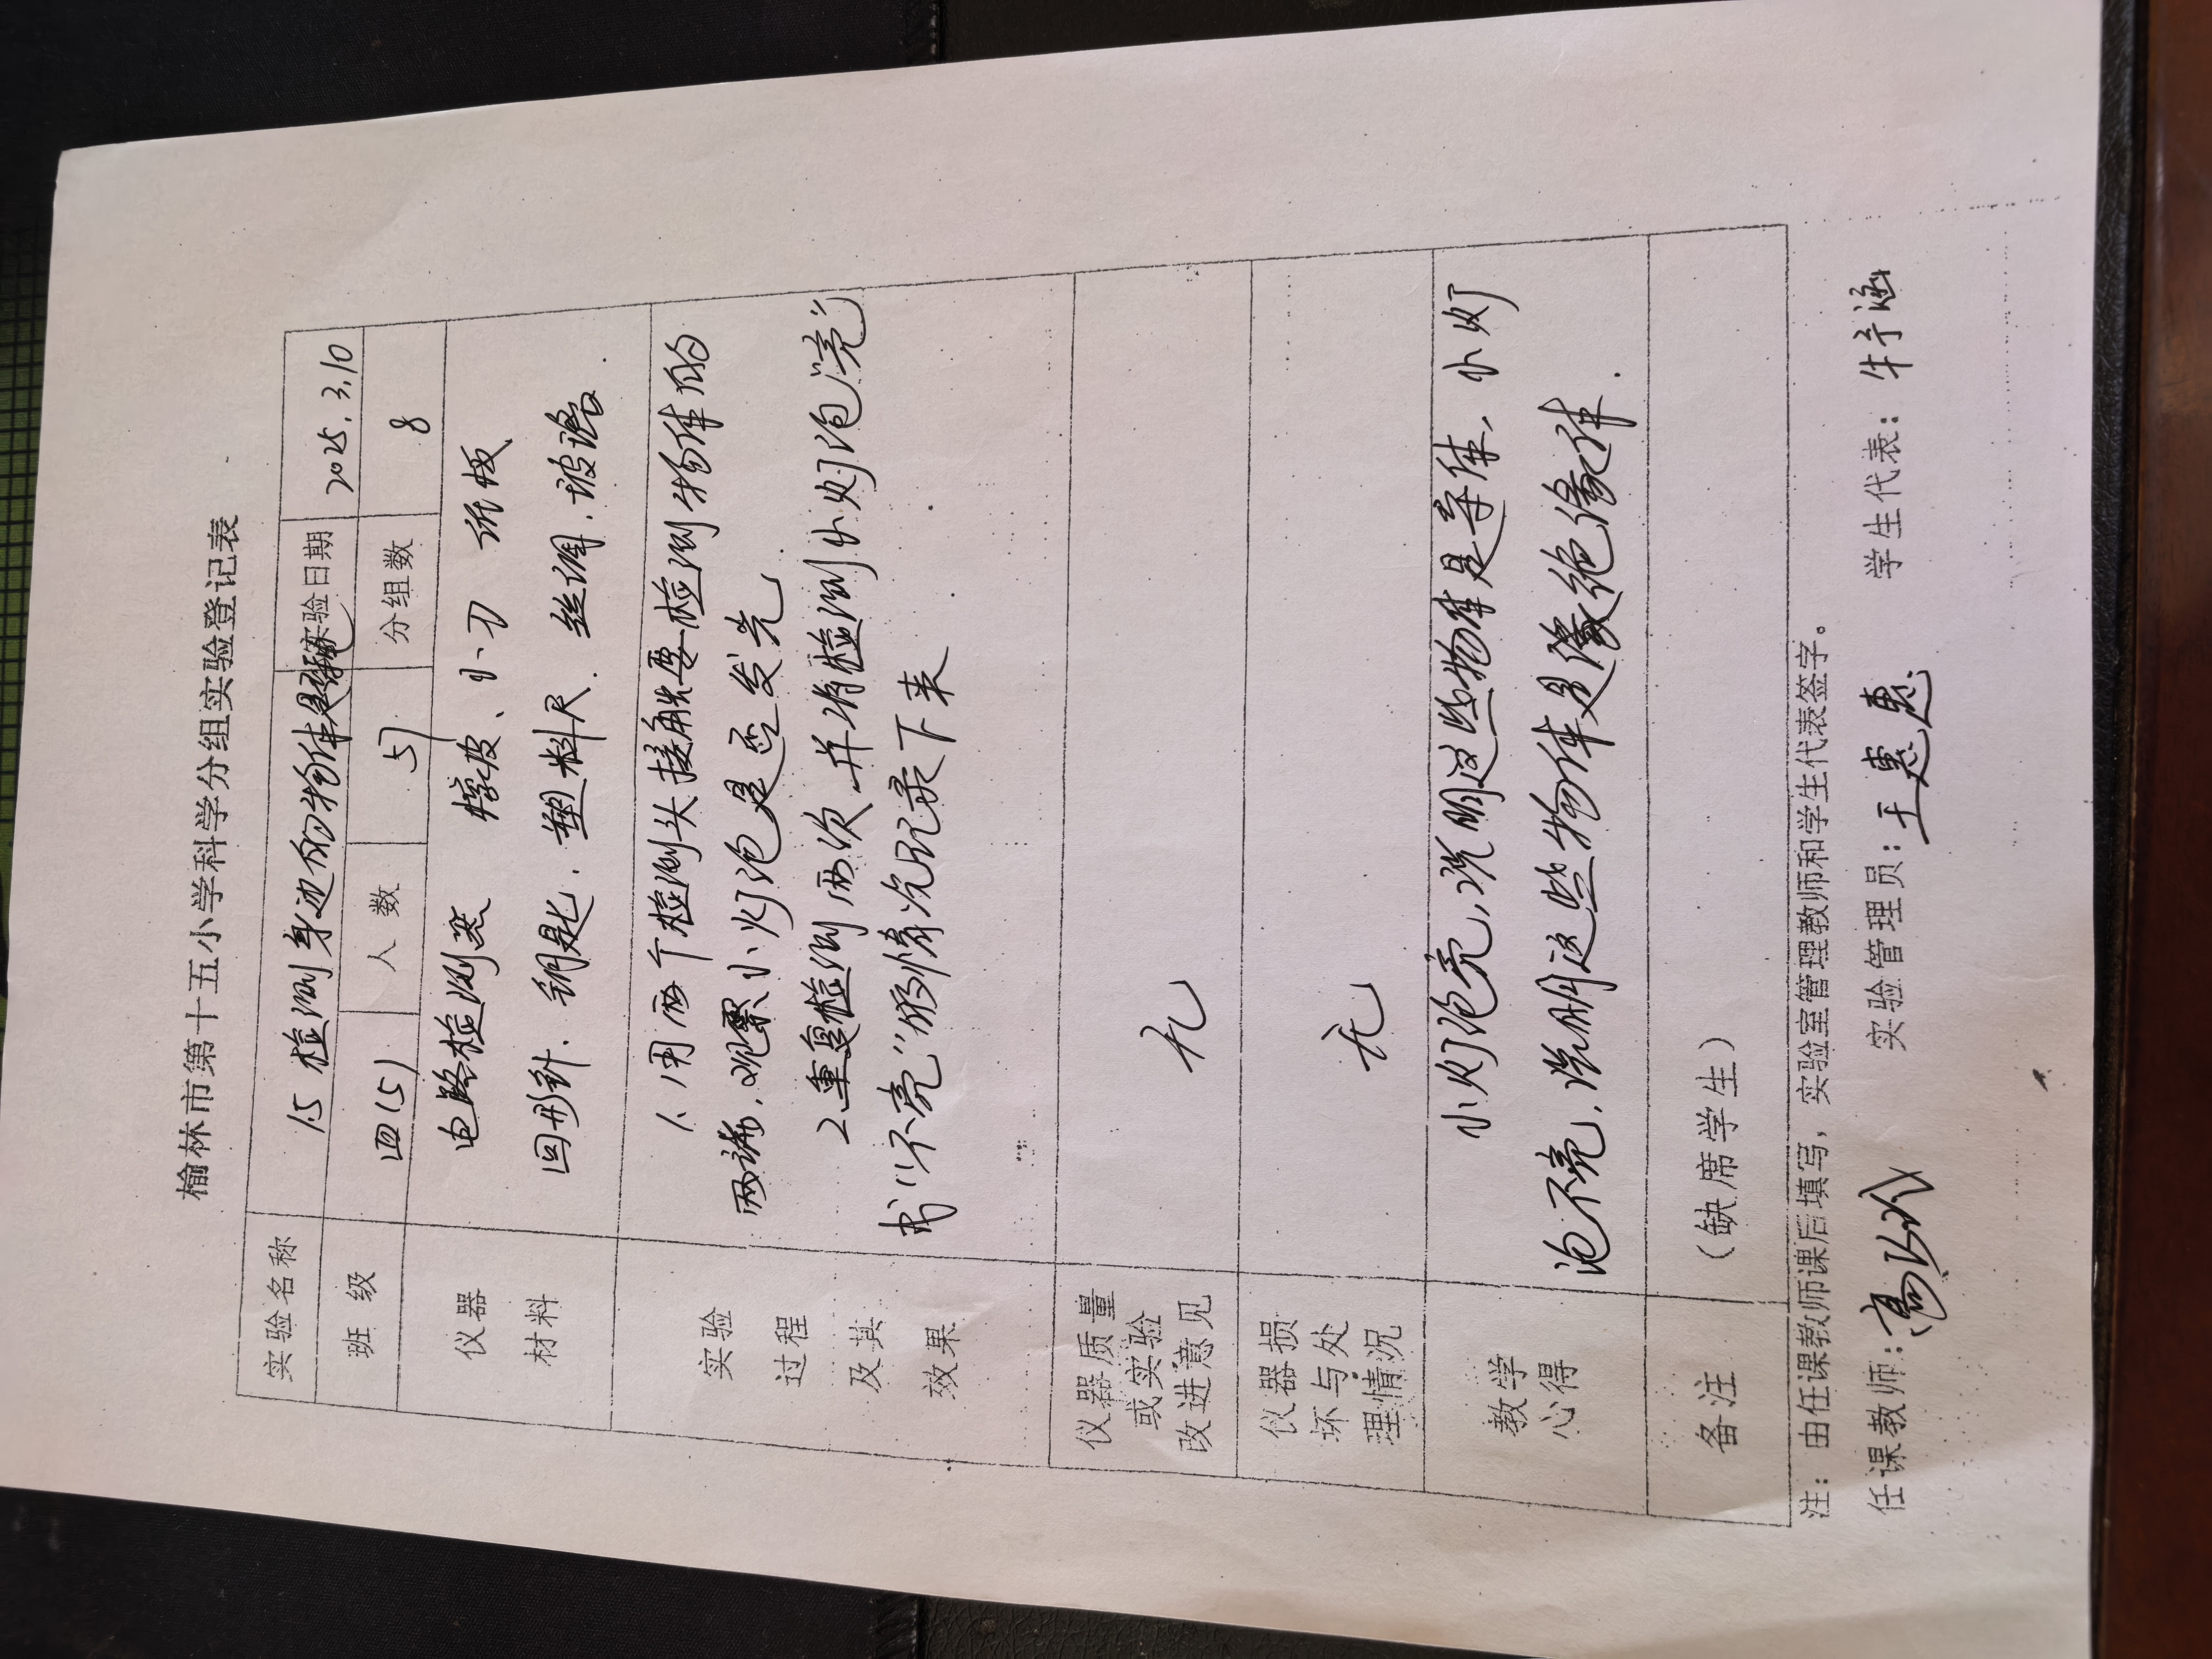 榆林市第十五小学科学分组实验登记表
实验名称 15 检测身边的物体是 实验日期 2025.3.10
班 级 四(5) 人 数 57 分组数 8
仪器 电路检测器 橡皮、小刀 纸板
材料 回形针.钥匙.塑料尺.丝绸.玻璃.
实验 1、用两个检测头接触要检测物体的
过程 两端,观察小灯泡是否发光.
及其 2重复检测两次,并将检测小灯泡“亮”
效果 或“不亮”的情况记录下来.
仪器质量
或实验 无
改进意见
仪器损
坏与处 无
理情况
教学 小灯泡亮,说明这些物体是导体,小灯
心得 泡不亮,说明这些物体是绝缘体.
备注 (缺席学生)
注:由任课教师课后填写,实验室管理教师和学生代表签字。
任课教师: 实验管理员:王惠惠 学生代表:牛子涵